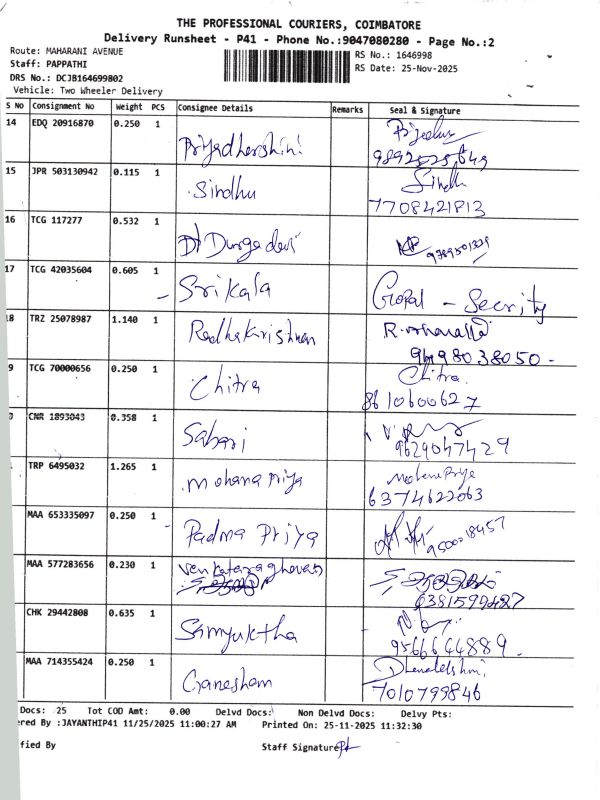 THE PROFESSIONAL COURIERS, COIMBATORE
Delivery Runsheet - P41 - Phone No.:9047080280 - Page No.:2
Route: MAHARANI AVENUE
RS No.: 1646998
Staff: PAPPATHI
RS Date: 25-Nov-2025
DRS No.: DCJB164699802
Vehicle: Two Wheeler Delivery
S No Consignment No Weight PCS Consignee Details Remarks Seal & Signature
14 EDQ 20916870 0.250 1 Priyadharshini
15 JPR 503130942 0.115 1 Sindhu Sindh
7708421813
16 TCG 117277 0.532 1 Dr Durgadevi
17 TCG 42035604 0.605 1 Srikala Gopal - Secrity
8 TRZ 25078987 1.140 1 Radhakrishnan
9698038050
9 TCG 70000656 0.250 1 Chitra Chitra
8610600627
CNR 1893043 0.358 1 Sabari
9629047429
TRP 6495032 1.265 1 mohana Priya
6374622063
MAA 653335097 0.250 1 Padma Priya
9500018457
MAA 577283656 0.230 1 Venkataraghavan
CHK 29442808 0.635 1 Samyuktha
9566644889
MAA 714355424 0.250 1 Ganesham
7010799846
Docs: 25 Tot COD Amt: 0.00 Delvd Docs: Non Delvd Docs: Delvy Pts:
ered By :JAYANTHIP41 11/25/2025 11:00:27 AM Printed On: 25-11-2025 11:32:30
fied By Staff Signature